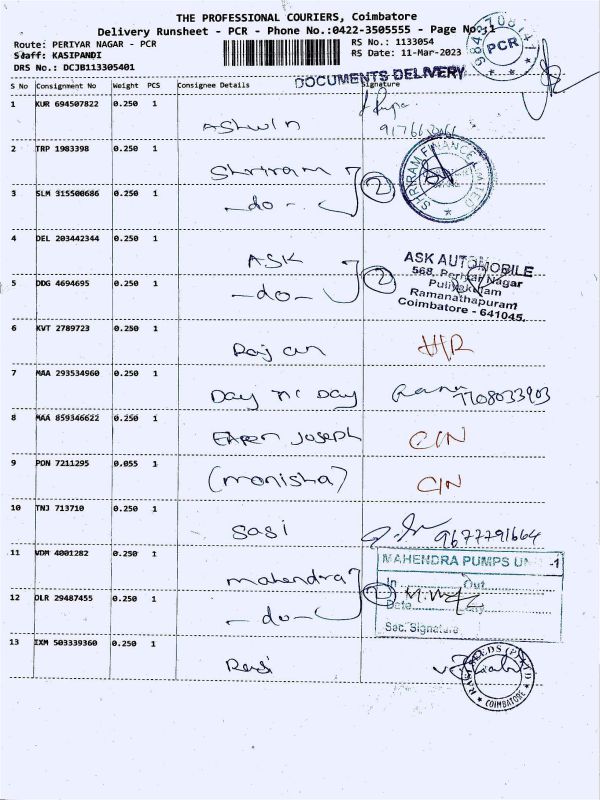 THE PROFESSIONAL COURIERS, Coimbatore
Delivery Runsheet - PCR - Phone No.:0422-3505555 - Page No.:1
Route: PERIYAR NAGAR - PCR
RS No.: 1133054
Staff: KASIPANDI
RS Date: 11-Mar-2023
DRS No.: DCJB113305401
PCR
DOCUMENTS DELIVERY
S No Consignment No Weight PCS Consignee Details Signature
1 KUR 694507822 0.250 1
Ashwin
2 TRP 1983398 0.250 1
Shriram
2
SHRIRAM FINANCE LIMITED
3 SLM 315500686 0.250 1
-do-
4 DEL 203442344 0.250 1
ASK
2
ASK AUTOMOBILE
568, Periyar Nagar
Puliyakulam
Ramanathapuram
Coimbatore - 641045.
5 DDG 4694695 0.250 1
-do-
6 KVT 2789723 0.250 1
Rajan H/R
7 MAA 293534960 0.250 1
Day n' Day 7708033903
8 MAA 859346622 0.250 1
Joseph C/N
9 PON 7211295 0.055 1
(monisha) C/N
10 TNJ 713710 0.250 1
Sasi 9677791664
11 VDM 4001282 0.250 1
mahendra
MAHENDRA PUMPS -1
In Out
Date
Sec. Signature
12 DLR 29487455 0.250 1
-do-
13 IXM 503339360 0.250 1
Rasi
COIMBATORE